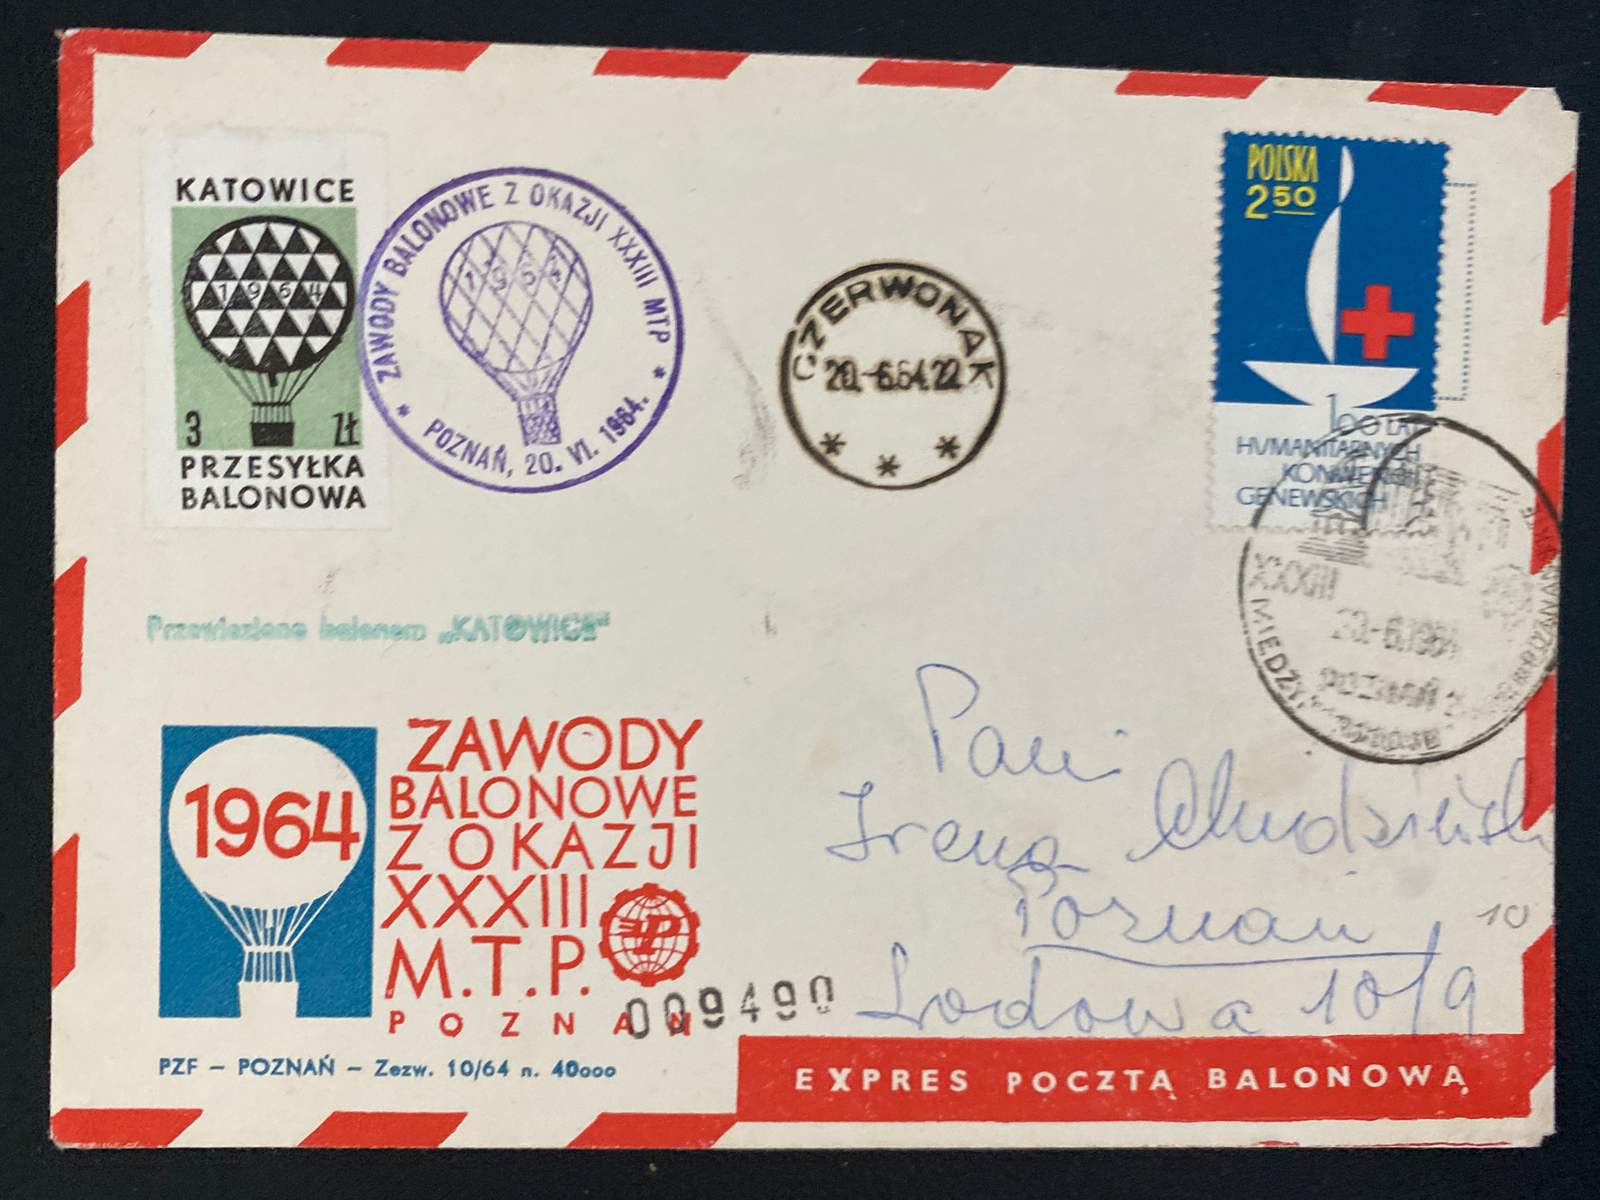 KATOWICE
1964
3 ZŁ
PRZESYŁKA
BALONOWA
ZAWODY BALONOWE Z OKAZJI XXXIII MTP
1964
* POZNAŃ, 20. VI. 1964. *
CZERWONAK
20.-6.64.22
POLSKA
2 50
100 LAT
HUMANITARNYCH
KONWENCJI
GENEWSKICH
XXXIII
20.-6.1964
POZNAŃ 2
Przewieziono balonem „KATOWICE"
1964
ZAWODY
BALONOWE
Z OKAZJI
XXXIII
M.T.P.
POZNAŃ
009490
PZF – POZNAŃ – Zezw. 10/64 n. 40000
Pani
Irena
Poznań
10
Lodowa 10/9
EXPRES POCZTĄ BALONOWĄ